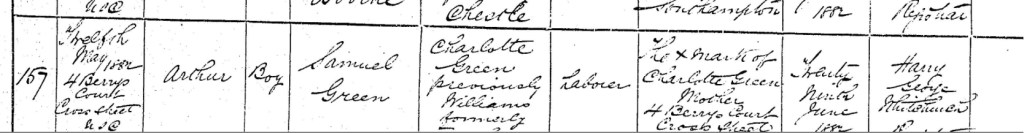 USD
Chestle
Southampton
1882
Registrar
157
Twelfth
May 1882
4 Berrys
Court
Cross Street
USD
Arthur
Boy
Samuel
Green
Charlotte
Green
previously
Williams
formerly
Labourer
The X mark of
Charlotte Green
Mother
4 Berrys Court
Cross Street
Twenty
Ninth
June
1882
Harry
George